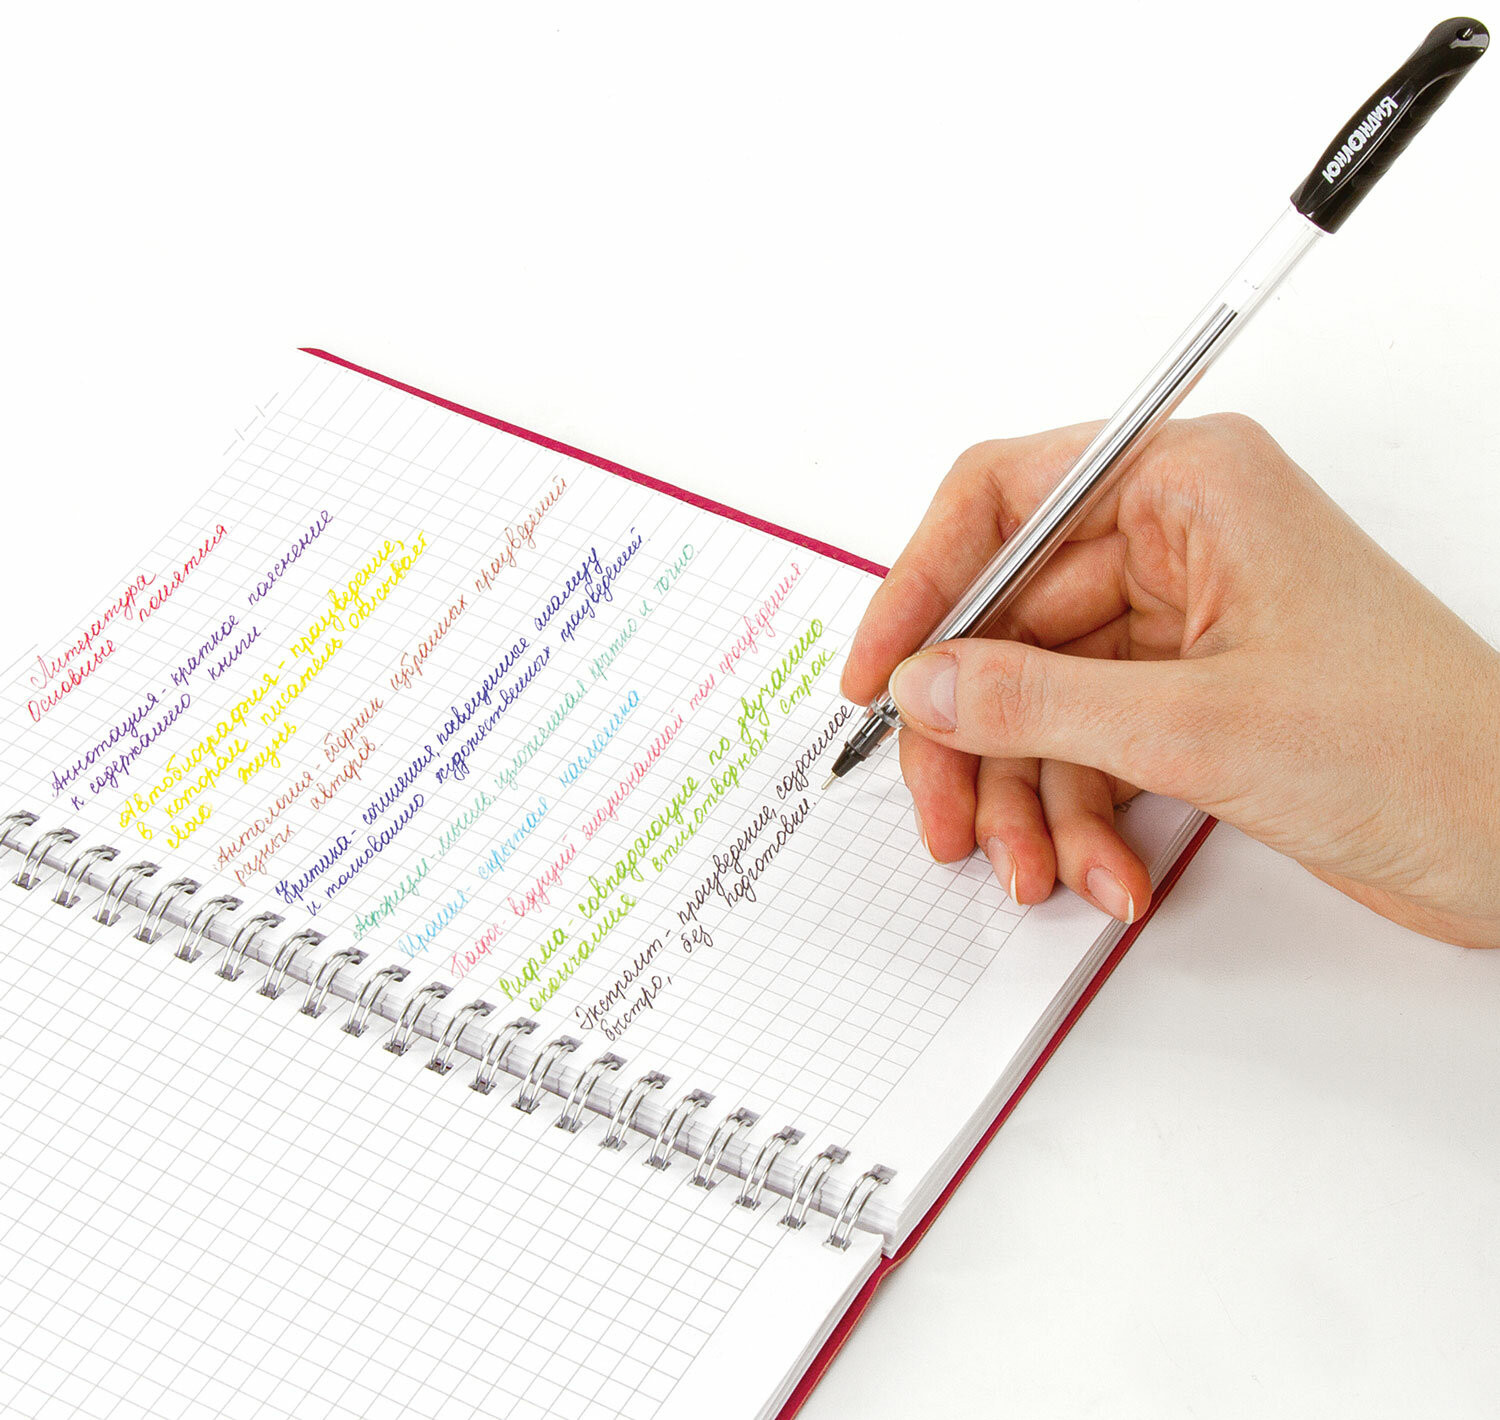 Литература
Основные понятия
Аннотация - краткое пояснение
к содержанию книги
Автобиография - произведение,
в котором писатель описывает
свою жизнь
Антология - сборник избранных произведений
разных авторов.
Критика - сочинения, посвященные анализу
и толкованию художественных произведений.
Афоризм - мысль, изложенная кратко и точно.
Ирония - скрытая насмешка
Пафос - ведущий эмоциональный тон произведения
Рифма - совпадающие по звучанию
окончания стихотворных строк.
Экспромт - произведение, созданное
быстро, без подготовки.
Юнландия